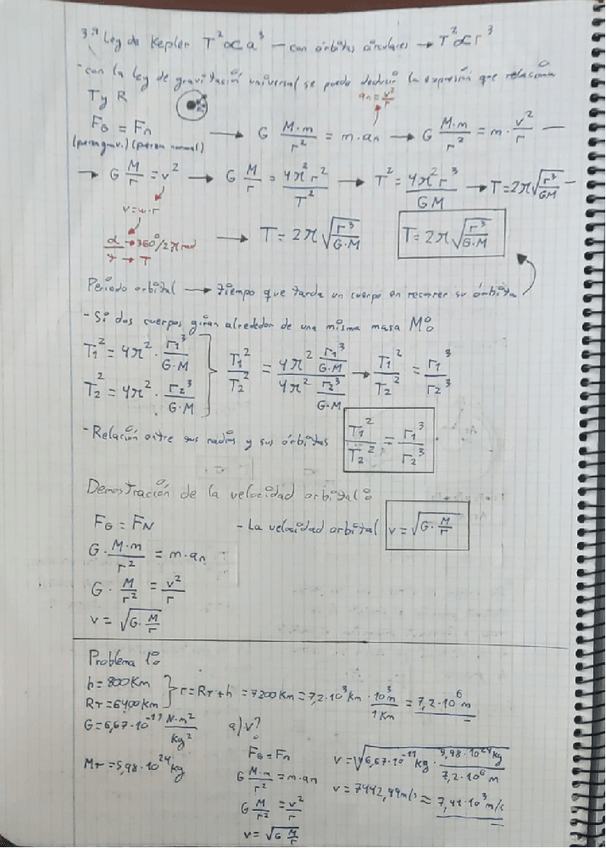 3.ª Ley de Kepler T² ∝ a³ – con órbitas circulares → T² ∝ r³
- con la ley de gravitación universal se puede deducir la expresión que relaciona
T y R
aₙ = v²/r
F_G = Fₙ → G M·m/r² = m·aₙ → G M·m/r² = m·v²/r —
(fuerza grav.) (fuerza normal)
→ G M/r = v² → G M/r = 4π²r²/T² → T² = 4π²r³/GM → T = 2π√(r³/GM) —
v = w·r
α → 360º/2π rad
t → T
→ T = 2π√(r³/G·M) T = 2π√(r³/G·M)
Periodo orbital → tiempo que tarda un cuerpo en recorrer su órbita
- Si dos cuerpos giran alrededor de una misma masa M:
T₁² = 4π² · r₁³/G·M
T₂² = 4π² · r₂³/G·M
T₁²/T₂² = (4π² r₁³/G·M)/(4π² r₂³/G·M) → T₁²/T₂² = r₁³/r₂³
- Relación entre sus radios y sus órbitas T₁²/T₂² = r₁³/r₂³
Demostración de la velocidad orbital:
F_G = F_N - La velocidad orbital v = √(G·M/r)
G·M·m/r² = m·aₙ
G·M/r² = v²/r
v = √(G·M/r)
Problema 1:
h = 800 Km
R_T = 6400 Km
} r = R_T + h = 7200 Km = 7,2·10³ Km · 10³ m/1 Km = 7,2·10⁶ m
G = 6,67·10⁻¹¹ N·m²/kg²
a) v?
M_T = 5,98·10²⁴ kg
F_G = Fₙ
G M·m/r² = m·aₙ
G M/r² = v²/r
v = √(G M/r)
v = √(6,67·10⁻¹¹ kg · 5,98·10²⁴ kg/7,2·10⁶ m)
v = 7442,99 m/s ≈ 7,44·10³ m/s